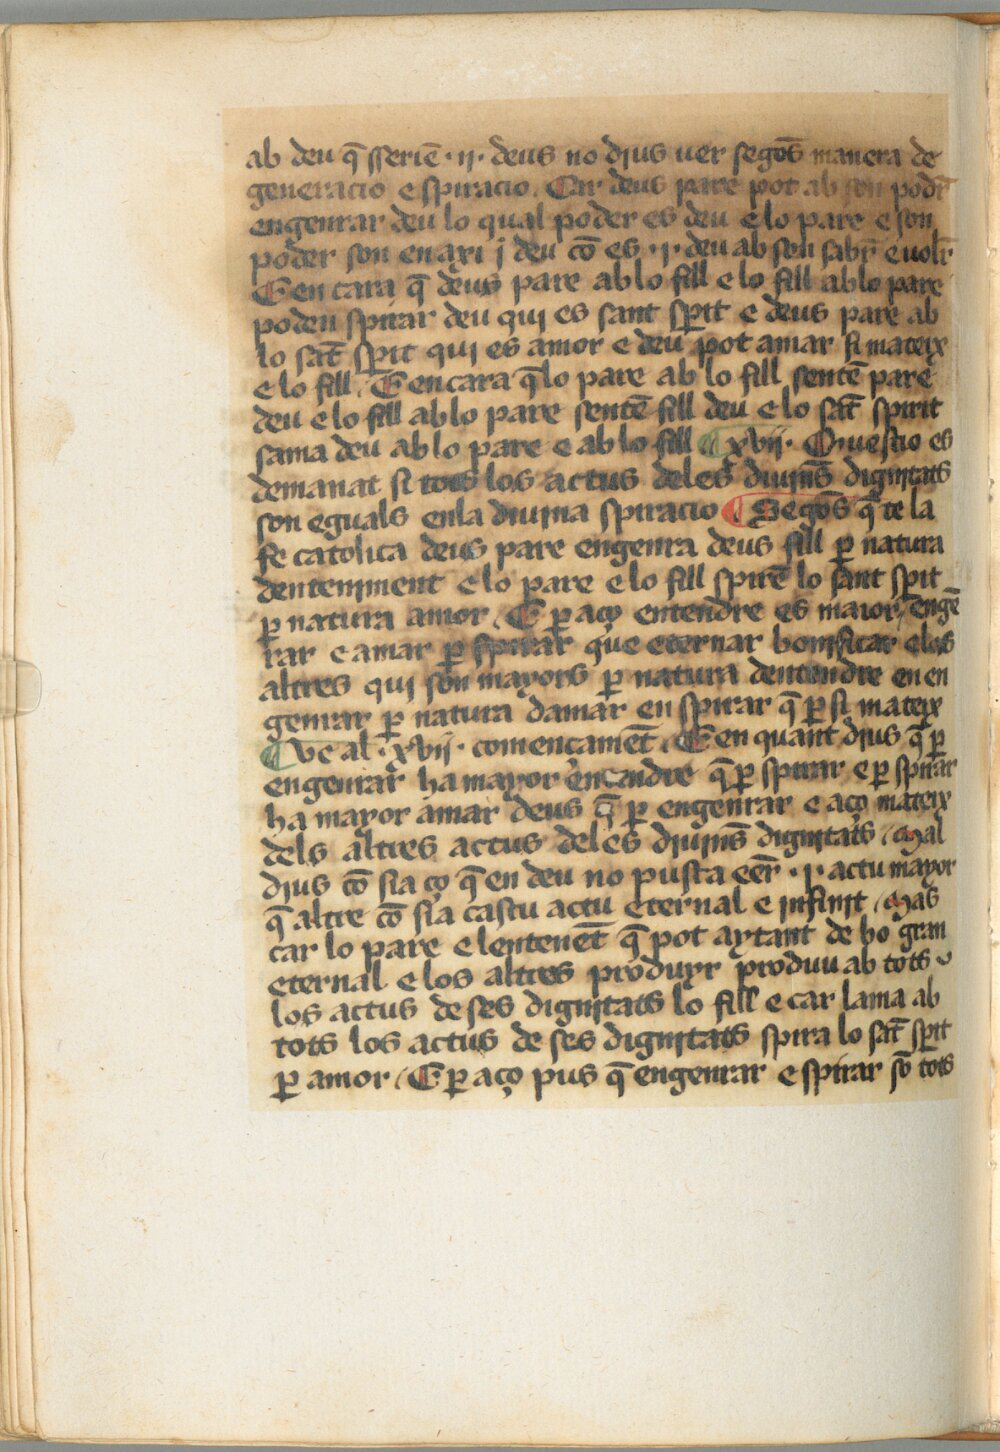 ab deu q̄ sseriē ·ii· deus no dius uer segōs manera de
generacio e spiracio. Car deus pare pot ab son podr̄
engenrar deu lo qual poder es deu e lo pare e son
poder son en axi j deu cō es ·i· deu ab son sabr̄ e uolr̄
E encara q̄ deus pare ab lo fill e lo fill ab lo pare
poden spirar deu qui es sant sp̄it e deus pare ab
lo sāt sp̄it qui es amor e deu pot amar si mateix
e lo fill. E encara q̄ lo pare ab lo fill sentē pare
deu e lo fill ab lo pare sentē fill deu e lo sāt spirit
sama deu ab lo pare e ab lo fill ¶ xvii· Questio es
demanat si tots los actus deles diuinēs dignitats
son eguals en la diuina spiracio ¶ Segōs q̄ te la
fe catolica deus pare engenra deus fill ꝑ natura
denteniment e lo pare e lo fill spirē lo sant sp̄it
ꝑ natura amor. E ꝑ aço entendre es maior, engē
rar e amar ꝑ spirar que eternar bonificar e los
altres qui son mayors ꝑ natura dentendre en en
genrar ꝑ natura damar en spirar q̄ ꝑ si mateix
¶ Ve al ·xvii· comencamēt. E en quant dius q̄ ꝑ
engenrar ha mayor entendre q̄ ꝑ spirar e ꝑ spirar
ha mayor amar deus q̄ ꝑ engenrar e aço mateix
dels altres actus deles diuinēs dignitats. Mal
dius cō sia ço q̄ en deu no pusta eēr ·i· actu mayor
q̄ altre cō sia cascu actu eternal e infinit. Mas
car lo pare e lentenēt q̄ pot aytant de bo gran
eternal e los altres produyr produu ab tots
los actus de ses dignitats lo fill e car lama ab
tots los actus de ses dignitats spira lo sāt sp̄it
ꝑ amor. E ꝑ aço pus q̄ engenrar e spirar sō tots